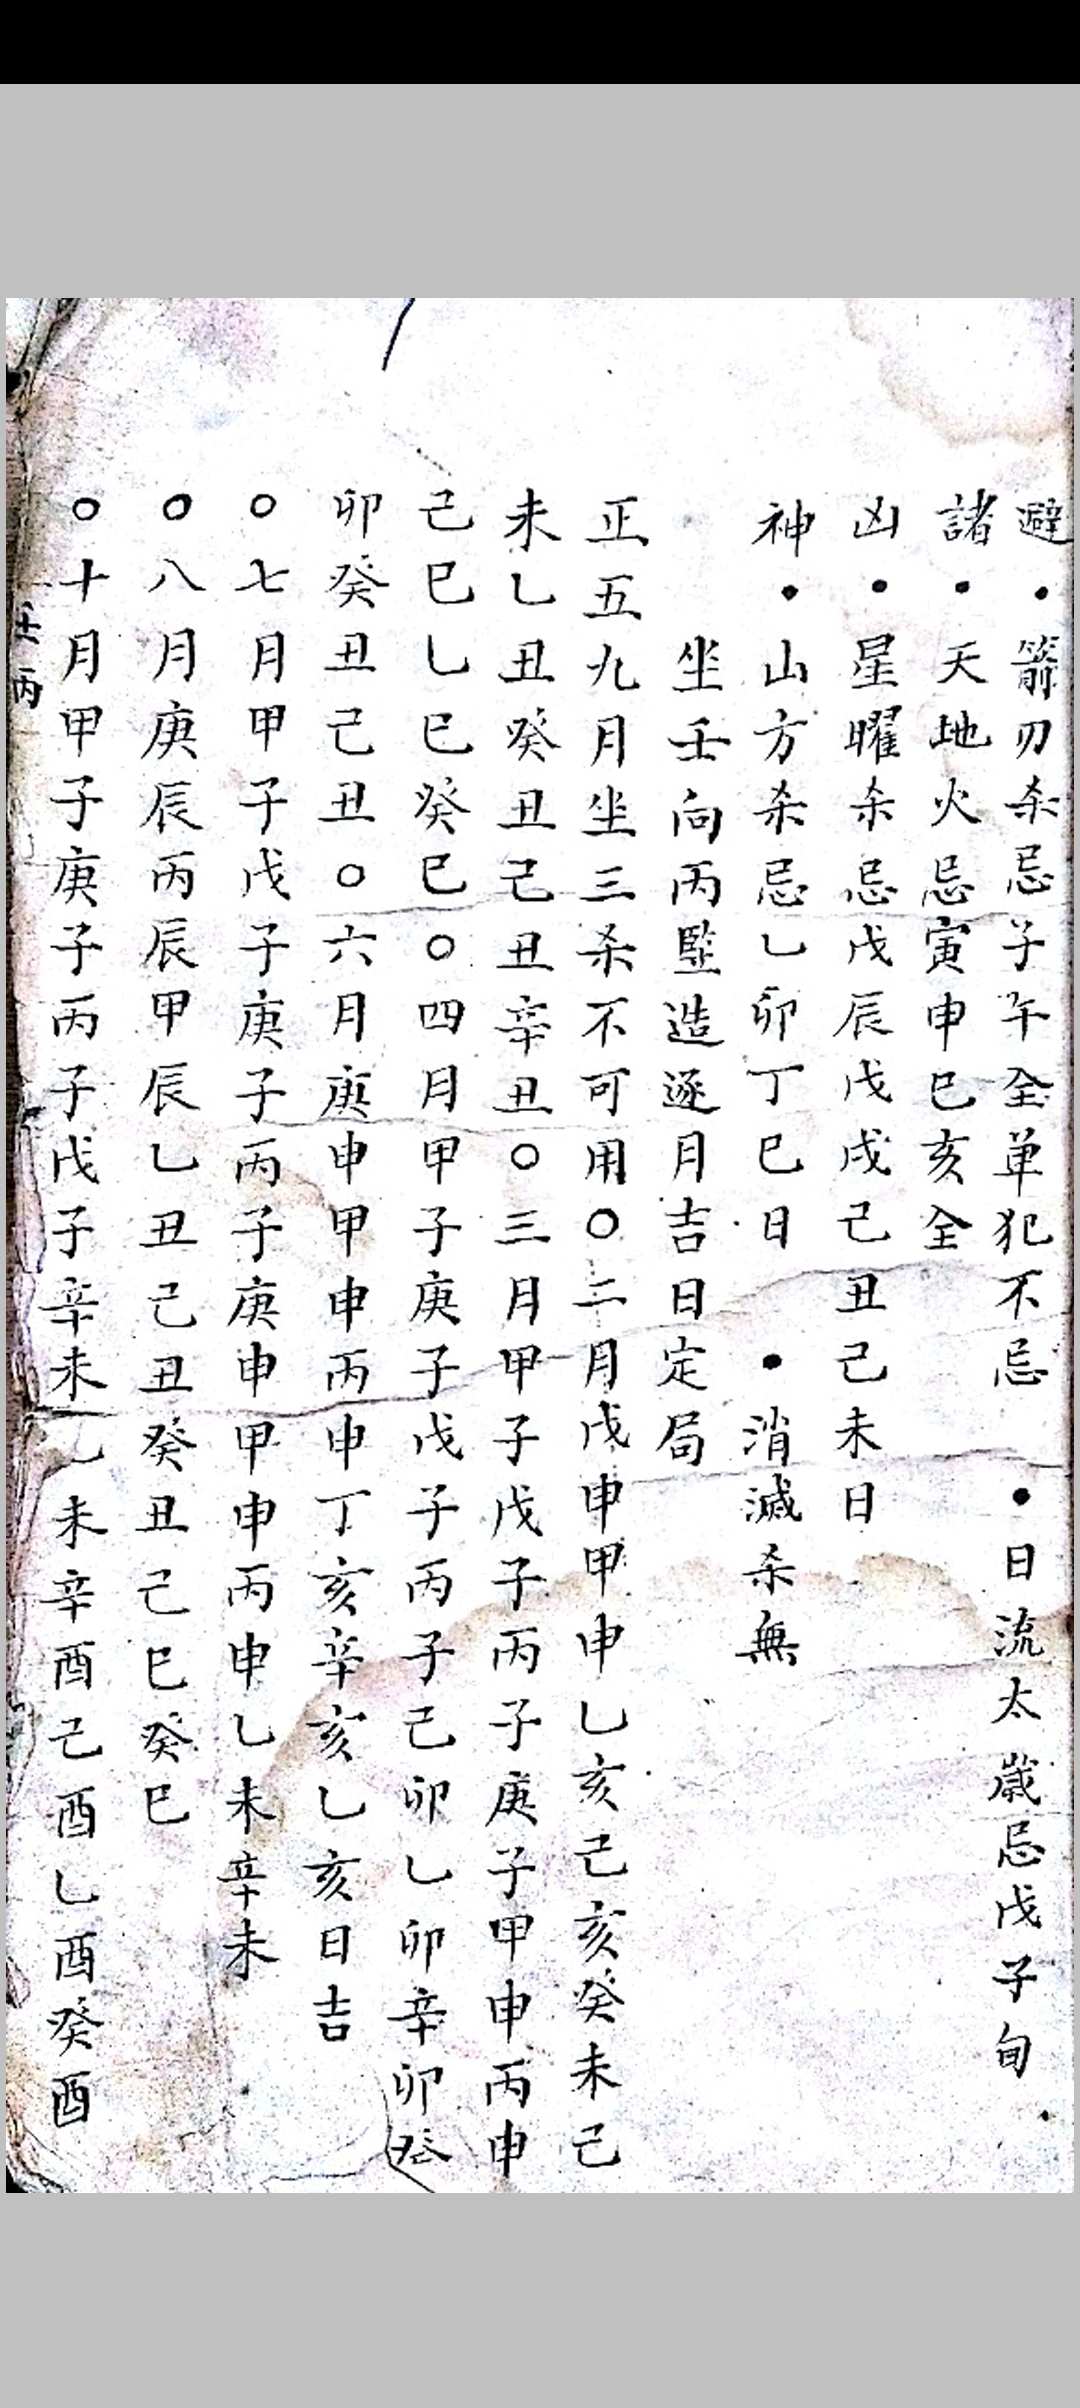 避・箭刃杀忌子午全单犯不忌　●日流太歲忌戊子旬
諸・天地火忌寅申巳亥全
凶・星曜杀忌戊辰戊戌己丑己未日
神・山方杀忌乙卯丁巳日　●消滅杀無
坐壬向丙竪造逐月吉日定局
正五九月坐三杀不可用○二月戊申甲申乙亥己亥癸未己
未乙丑癸丑己丑辛丑○三月甲子戊子丙子庚子甲申丙申
己巳乙巳癸巳○四月甲子庚子戊子丙子己卯乙卯辛卯癸
卯癸丑己丑○六月庚申甲申丙申丁亥辛亥乙亥日吉
○七月甲子戊子庚子丙子庚申甲申丙申乙未辛未
○八月庚辰丙辰甲辰乙丑己丑癸丑己巳癸巳
○十月甲子庚子丙子戊子辛未乙未辛酉己酉乙酉癸酉
壬丙